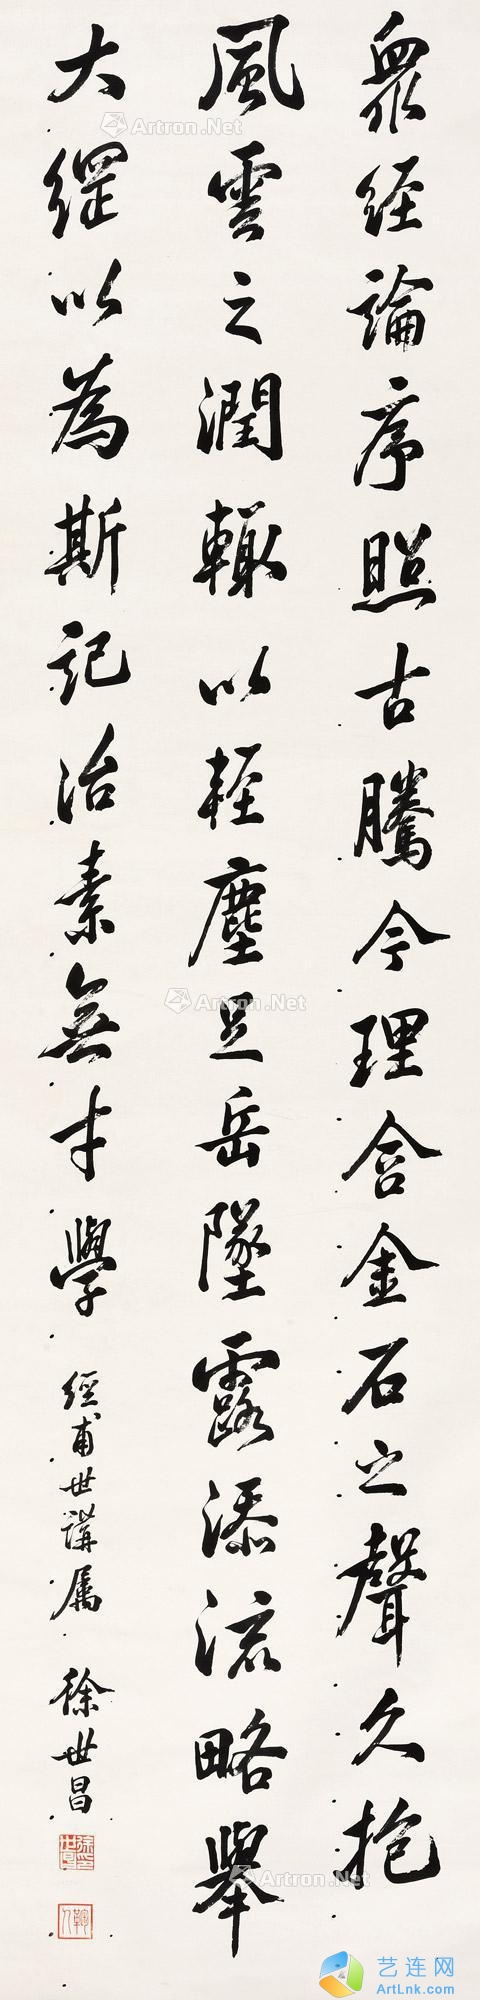 眾经論序照古騰今理含金石之聲久抱
風雲之潤輙以輕塵足岳墜露添流略舉
大綱以為斯記治素無才學
經甫世講属 徐世昌
Artron.Net
Artron.Net
Artron.Net
艺连网
ArtLnk.com